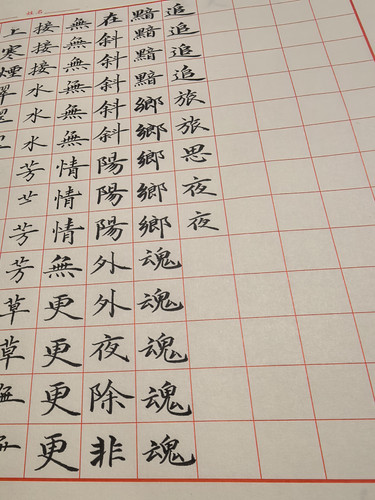 追追追追旅旅思夜夜
黯黯黯黯鄉鄉鄉鄉鄉魂魂魂魂魂
在斜斜斜斜斜陽陽陽外外夜除非
無無無無無無情情情無更更更更
接接接水水水芳芳芳草草無無
上寒煙翠